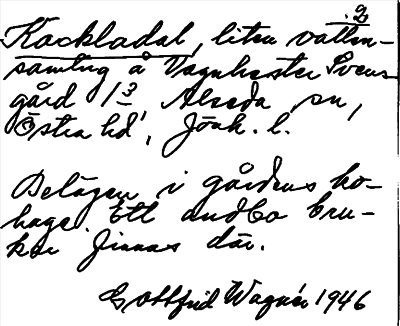 2
Kackladal, liten vatten-
samling å Vagnhester Svens
gård 1 3 Alseda sn,
Östra hd, Jönk. l.
Belägen i gårdens ko-
hage. Ett andbo bru-
kar finnas där.
Gottfrid Wagnér 1946